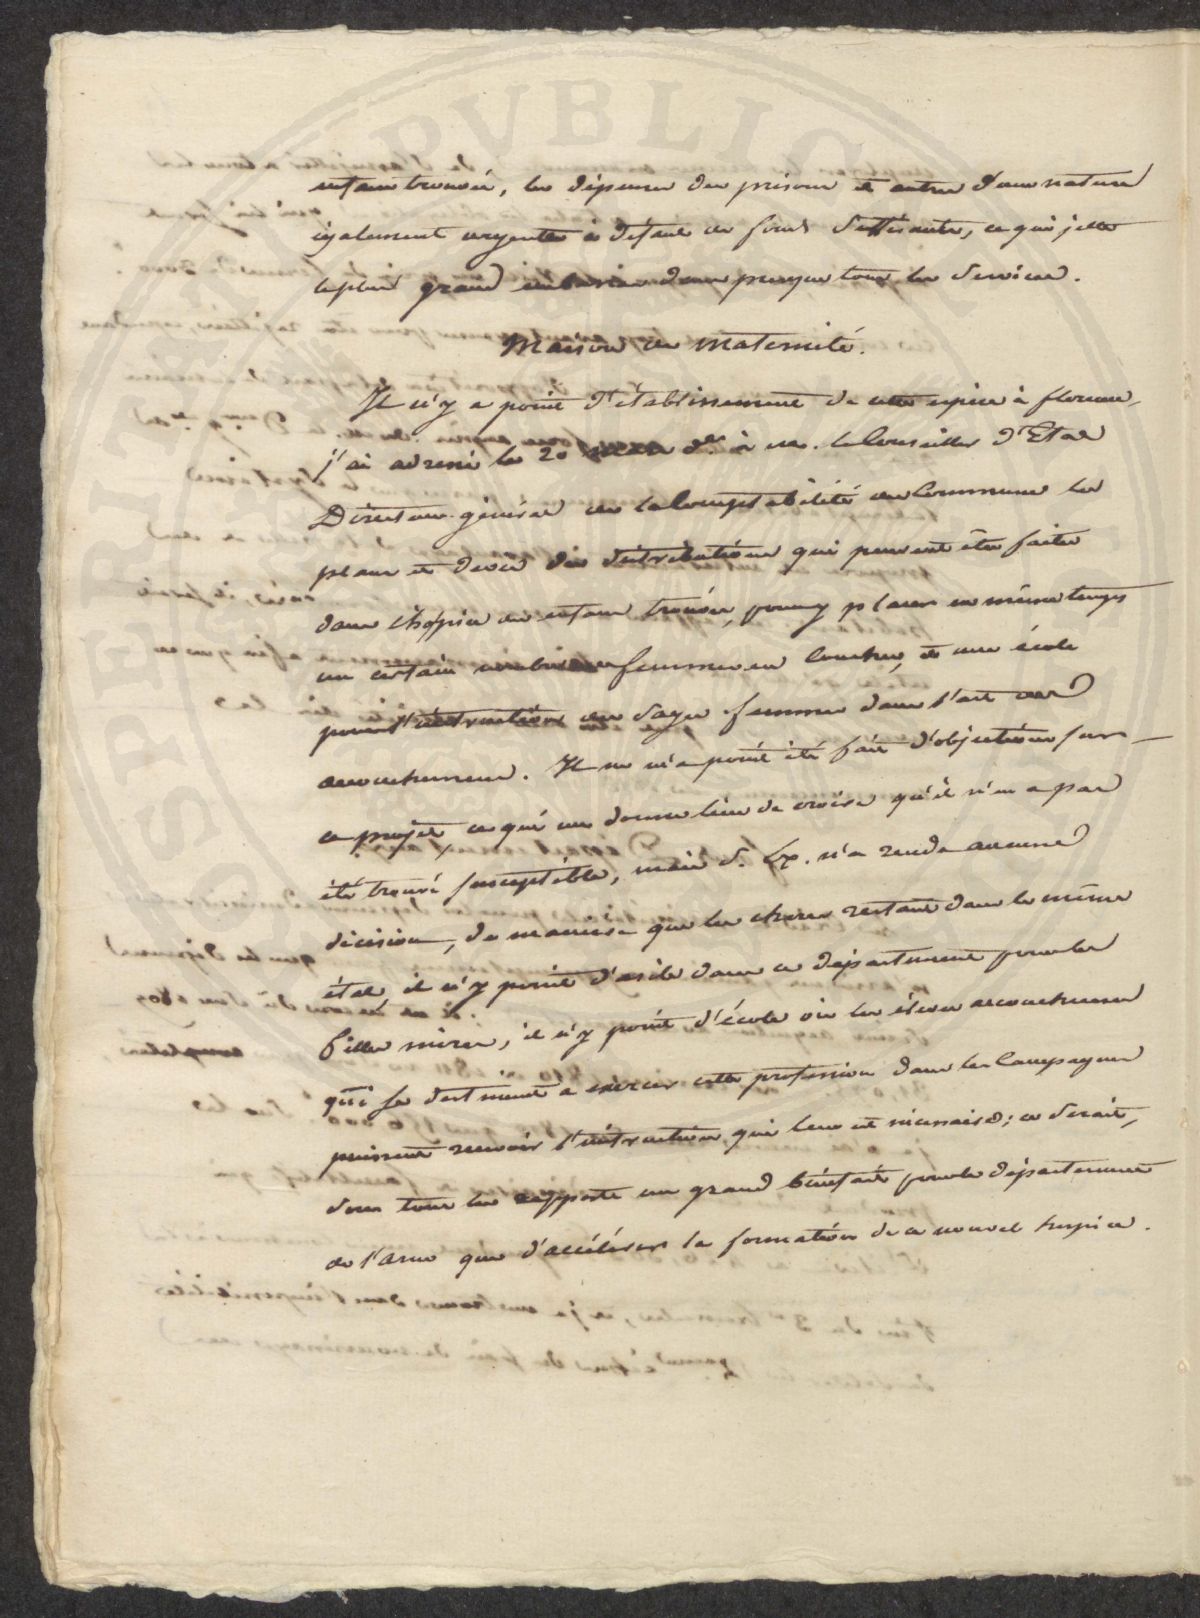 enfans trouvés, les dépenses des prisons et autres d'une nature
également urgente à défaut de fonds suffisants, ce qui jette
le plus grand embarras dans presque tous les services.
Maison de Maternité.
Il n'y a point d'établissement de cette espèce à florence,
j'ai adressé le 20 dr. à m. le Conseiller d'Etat
Directeur général de la Comptabilité des Communes les
plans et devis des distributions qui peuvent être faites
dans l'hospice des enfans trouvés, pour y placer en même temps
un certain nombre de femmes en couches, et une école
pour l'instruction des sages femmes dans l'art des
accouchemens. Il ne m'a point été fait d'objections sur
ce projet, ce qui me donne lieu de croire qu'il n'en a pas
été trouvé susceptible, mais S. Ex. n'a rendu aucune
décision, de manière que les choses restant dans le même
état, il n'y point d'asile dans ce département pour les
filles mères, il n'y point d'école où les élèves accoucheuses
qui se destinent à exercer cette profession dans les Campagnes
puissent recevoir l'instruction qui leur est nécessaire; ce serait,
sous tous les rapports un grand bienfait pour le département
de l'Arno que d'accélérer la formation de ce nouvel hospice.
PVBLIC